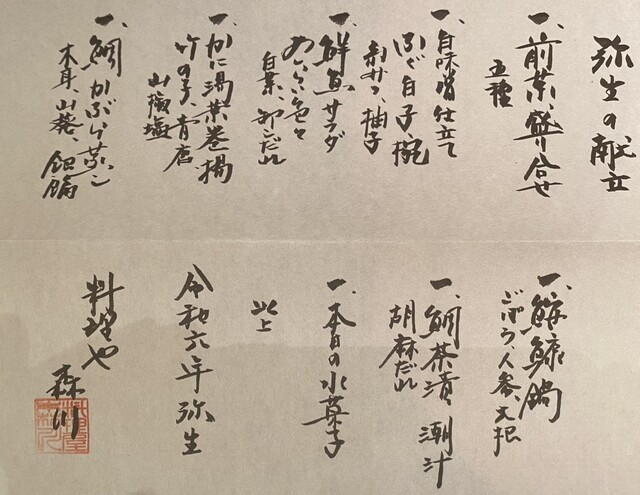 弥生の献立
一、前菜、盛り合せ
五種
一、白味噌仕立て
ふぐ白子椀
利休、柚子
一、鮮魚サラダ
めいめい色々
白葉、卵だれ
一、かに湯葉巻揚
竹の子、青唐
山椒塩
一、鯛かぶら蒸し
木耳、山葵、銀餡
一、鯨鍋
ごぼう、人参、大根
一、鯛茶漬 潮汁
胡麻だれ
一、本日の水菓子
以上
令和六年弥生
料理や
森川